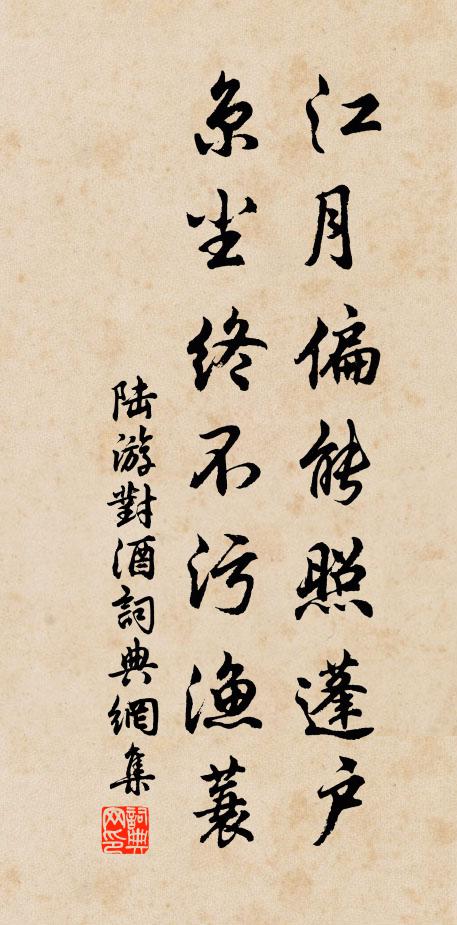 江月偏能照蓬户
京尘终不污渔蓑
陆游對酒詞典網集
詞典网印